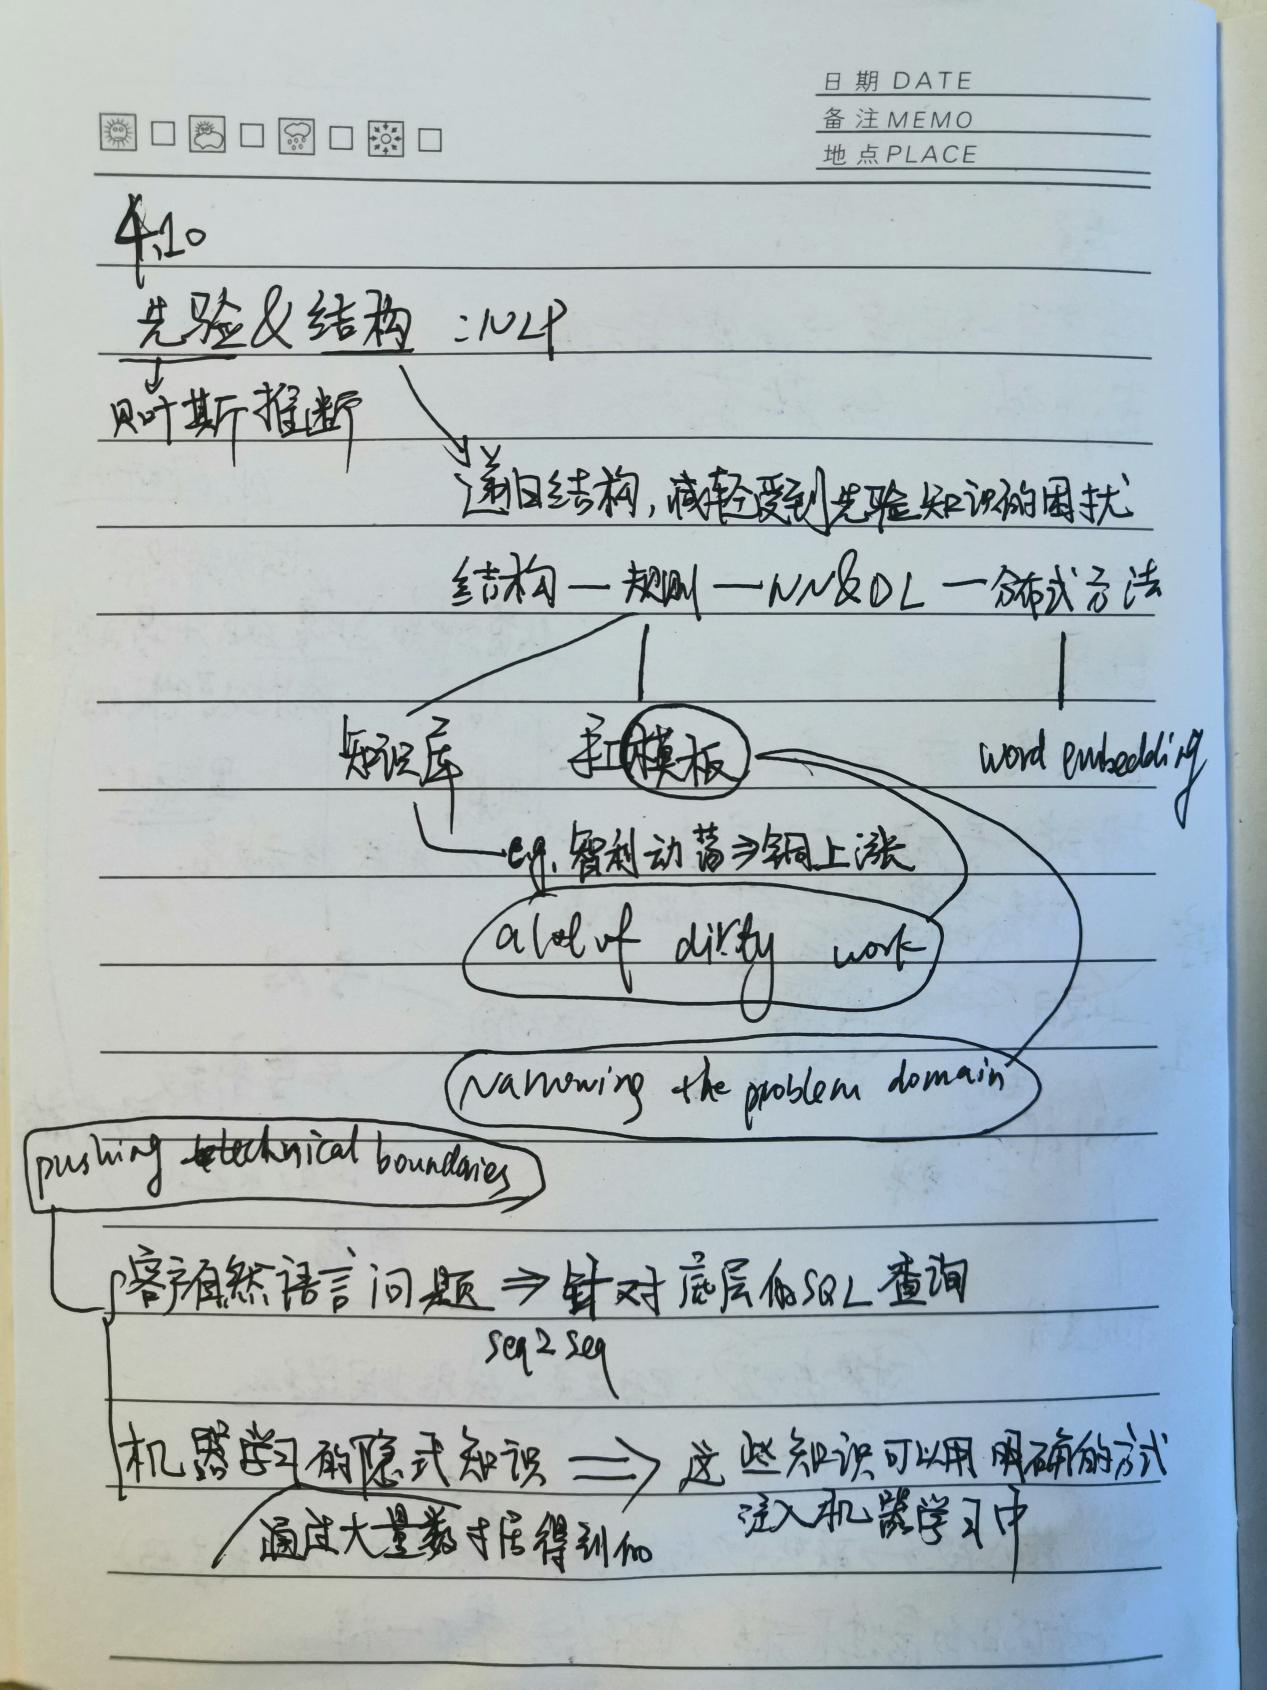 日期 DATE
备注 MEMO
地点 PLACE
4.10
先验&结构：NLP
贝叶斯推断
递归结构，减轻受到先验知识的困扰
结构—规则—NN&DL—分布式方法
知识库 手工模板 word embedding
eg. 智利动荡⇒铜上涨
a lot of dirty work
Narrowing the problem domain
pushing technical boundaries
客户自然语言问题⇒针对底层的SQL查询
seq2seq
机器学习的隐式知识⇒这些知识可以用明确的方式
注入机器学习中
通过大量数据得到的